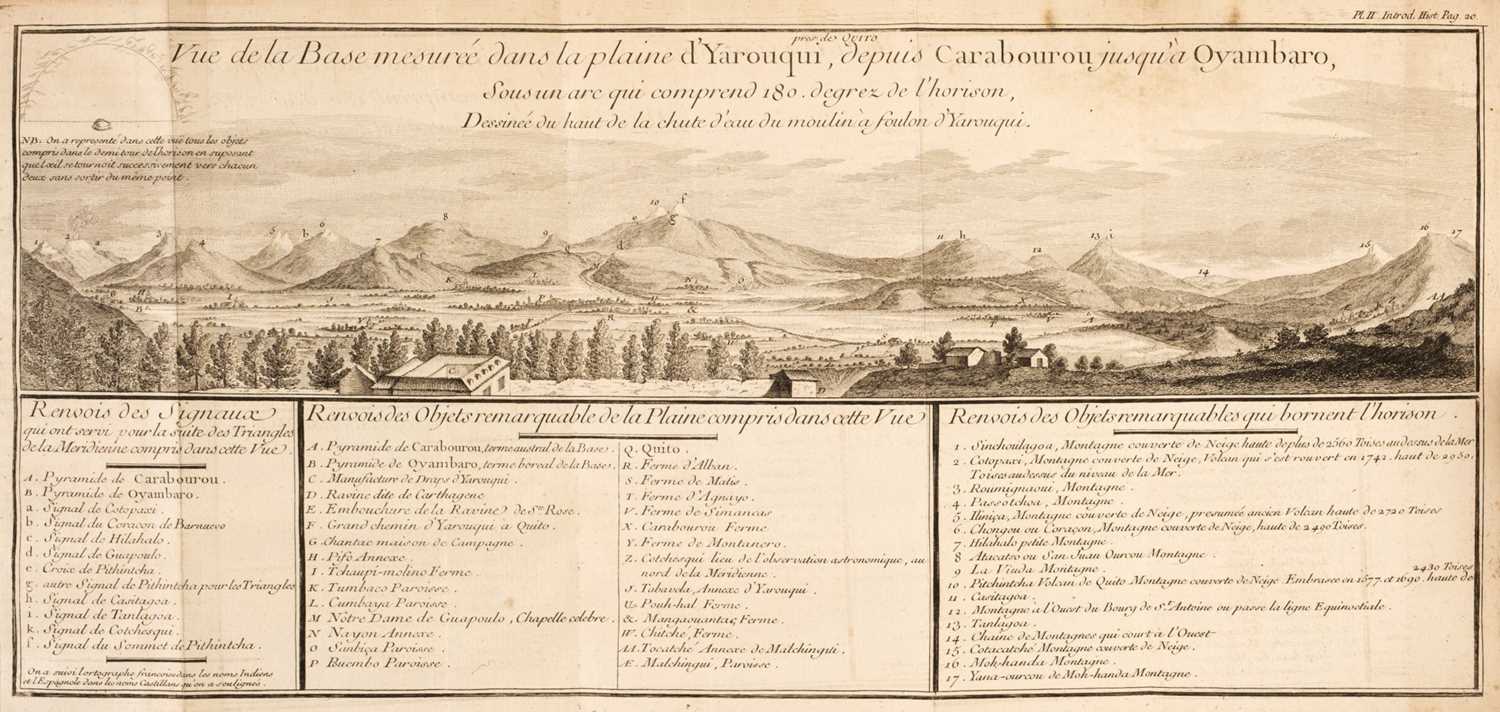 Pl. II. Introd. Hist. Pag. 20.
près de Quito
Vue de la Base mesureé dans la plaine d'Yarouqui, depuis Carabourou jusqu'à Oyambaro,
Sous un arc qui comprend 180. degrez de l'horison,
Dessinée du haut de la chute d'eau du moulin à foulon d'Yarouqui.
NB. On a representé dans cette vuë tous les objets
compris dans le demi tour de l'horison en suposant
que l'œil se tournoit successivement vers chacun
deux sans sortir du même point.
Renvois des Signaux
qui ont servi pour la suite des Triangles
de la Meridienne compris dans cette Vue.
A. Pyramide de Carabourou.
B. Pyramide de Oyambaro.
a. Signal de Cotopaxi.
b. Signal du Coraçon de Barnuevo
c. Signal de Hilahalo.
d. Signal de Guapoulo.
e. Croix de Pithintcha.
g. autre Signal de Pithintcha pour les Triangles
h. Signal de Casitagoa.
i. Signal de Tanlagoa.
k. Signal de Cotchesqui.
f. Signal du Sommet de Pithintcha.
On a suivi l'ortographe françoise dans les noms Indiens
et l'Espagnole dans les noms Castillans qu'on a soulignés.
Renvois des Objets remarquable de la Plaine compris dans cette Vue
A. Pyramide de Carabourou, terme austral de la Base.
B. Pyramide de Oyambaro, terme boreal de la Base.
C. Manufacture de Draps d'Yarouqui.
D. Ravine dite de Carthagene
E. Embouchure de la Ravine de Ste. Rose.
F. Grand chemin d'Yarouqui à Quito.
G. Chantac maison de Campagne.
H. Pifo Annexe.
I. Tchaupi-molino Ferme.
K. Tumbaco Paroisse.
L. Cumbaya Paroisse.
M. Nôtre Dame de Guapoulo, Chapelle celebre.
N. Nayon Annexe.
O. Sanbiça Paroisse.
P. Buembo Paroisse.
Q. Quito.
R. Ferme d'Alban.
S. Ferme de Matis.
T. Ferme d'Agnayo.
V. Ferme de Simancas
X. Carabourou Ferme
Y. Ferme de Montanero.
Z. Cotchesqui lieu de l'observation astronomique, au
nord de la Meridienne.
J. Tabavela, Annexe d'Yarouqui.
U. Pouh-hal Ferme.
&. Mangaouantac Ferme.
W. Chitché, Ferme.
AA. Tocatché Annexe de Malchingui.
Æ. Malchingui, Paroisse.
Renvois des Objets remarquables qui bornent l'horison.
1. Sinchoulagoa, Montagne couverte de Neige haute de plus de 2560 Toises au dessus de la Mer
2. Cotopaxi, Montagne couverte de Neige, Volcan qui s'est rouvert en 1742. haut de 2950.
Toises au dessus du niveau de la Mer.
3. Roumignaoui, Montagne.
4. Passotchoa, Montagne.
5. Iliniça, Montagne couverte de Neige, presumée ancien Volcan haute de 2720 Toises
6. Chongou ou Coraçon, Montagne couverte de Neige, haute de 2490 Toises.
7. Hilahalo petite Montagne.
8. Atacatso ou San Juan Ourcou Montagne.
9. La Viuda Montagne.
2430 Toises
10. Pitchintcha Volcan de Quito Montagne couverte de Neige. Embrasée en 1577. et 1690. haute de
11. Casitagoa.
12. Montagne à l'Ouest du Bourg de St. Antoine ou passe la ligne Equinoctiale.
13. Tanlagoa.
14. Chaîne de Montagnes qui court à l'Ouest
15. Cotacatché Montagne couverte de Neige.
16. Moh-handa Montagne.
17. Yana-ourcou de Moh-handa Montagne.